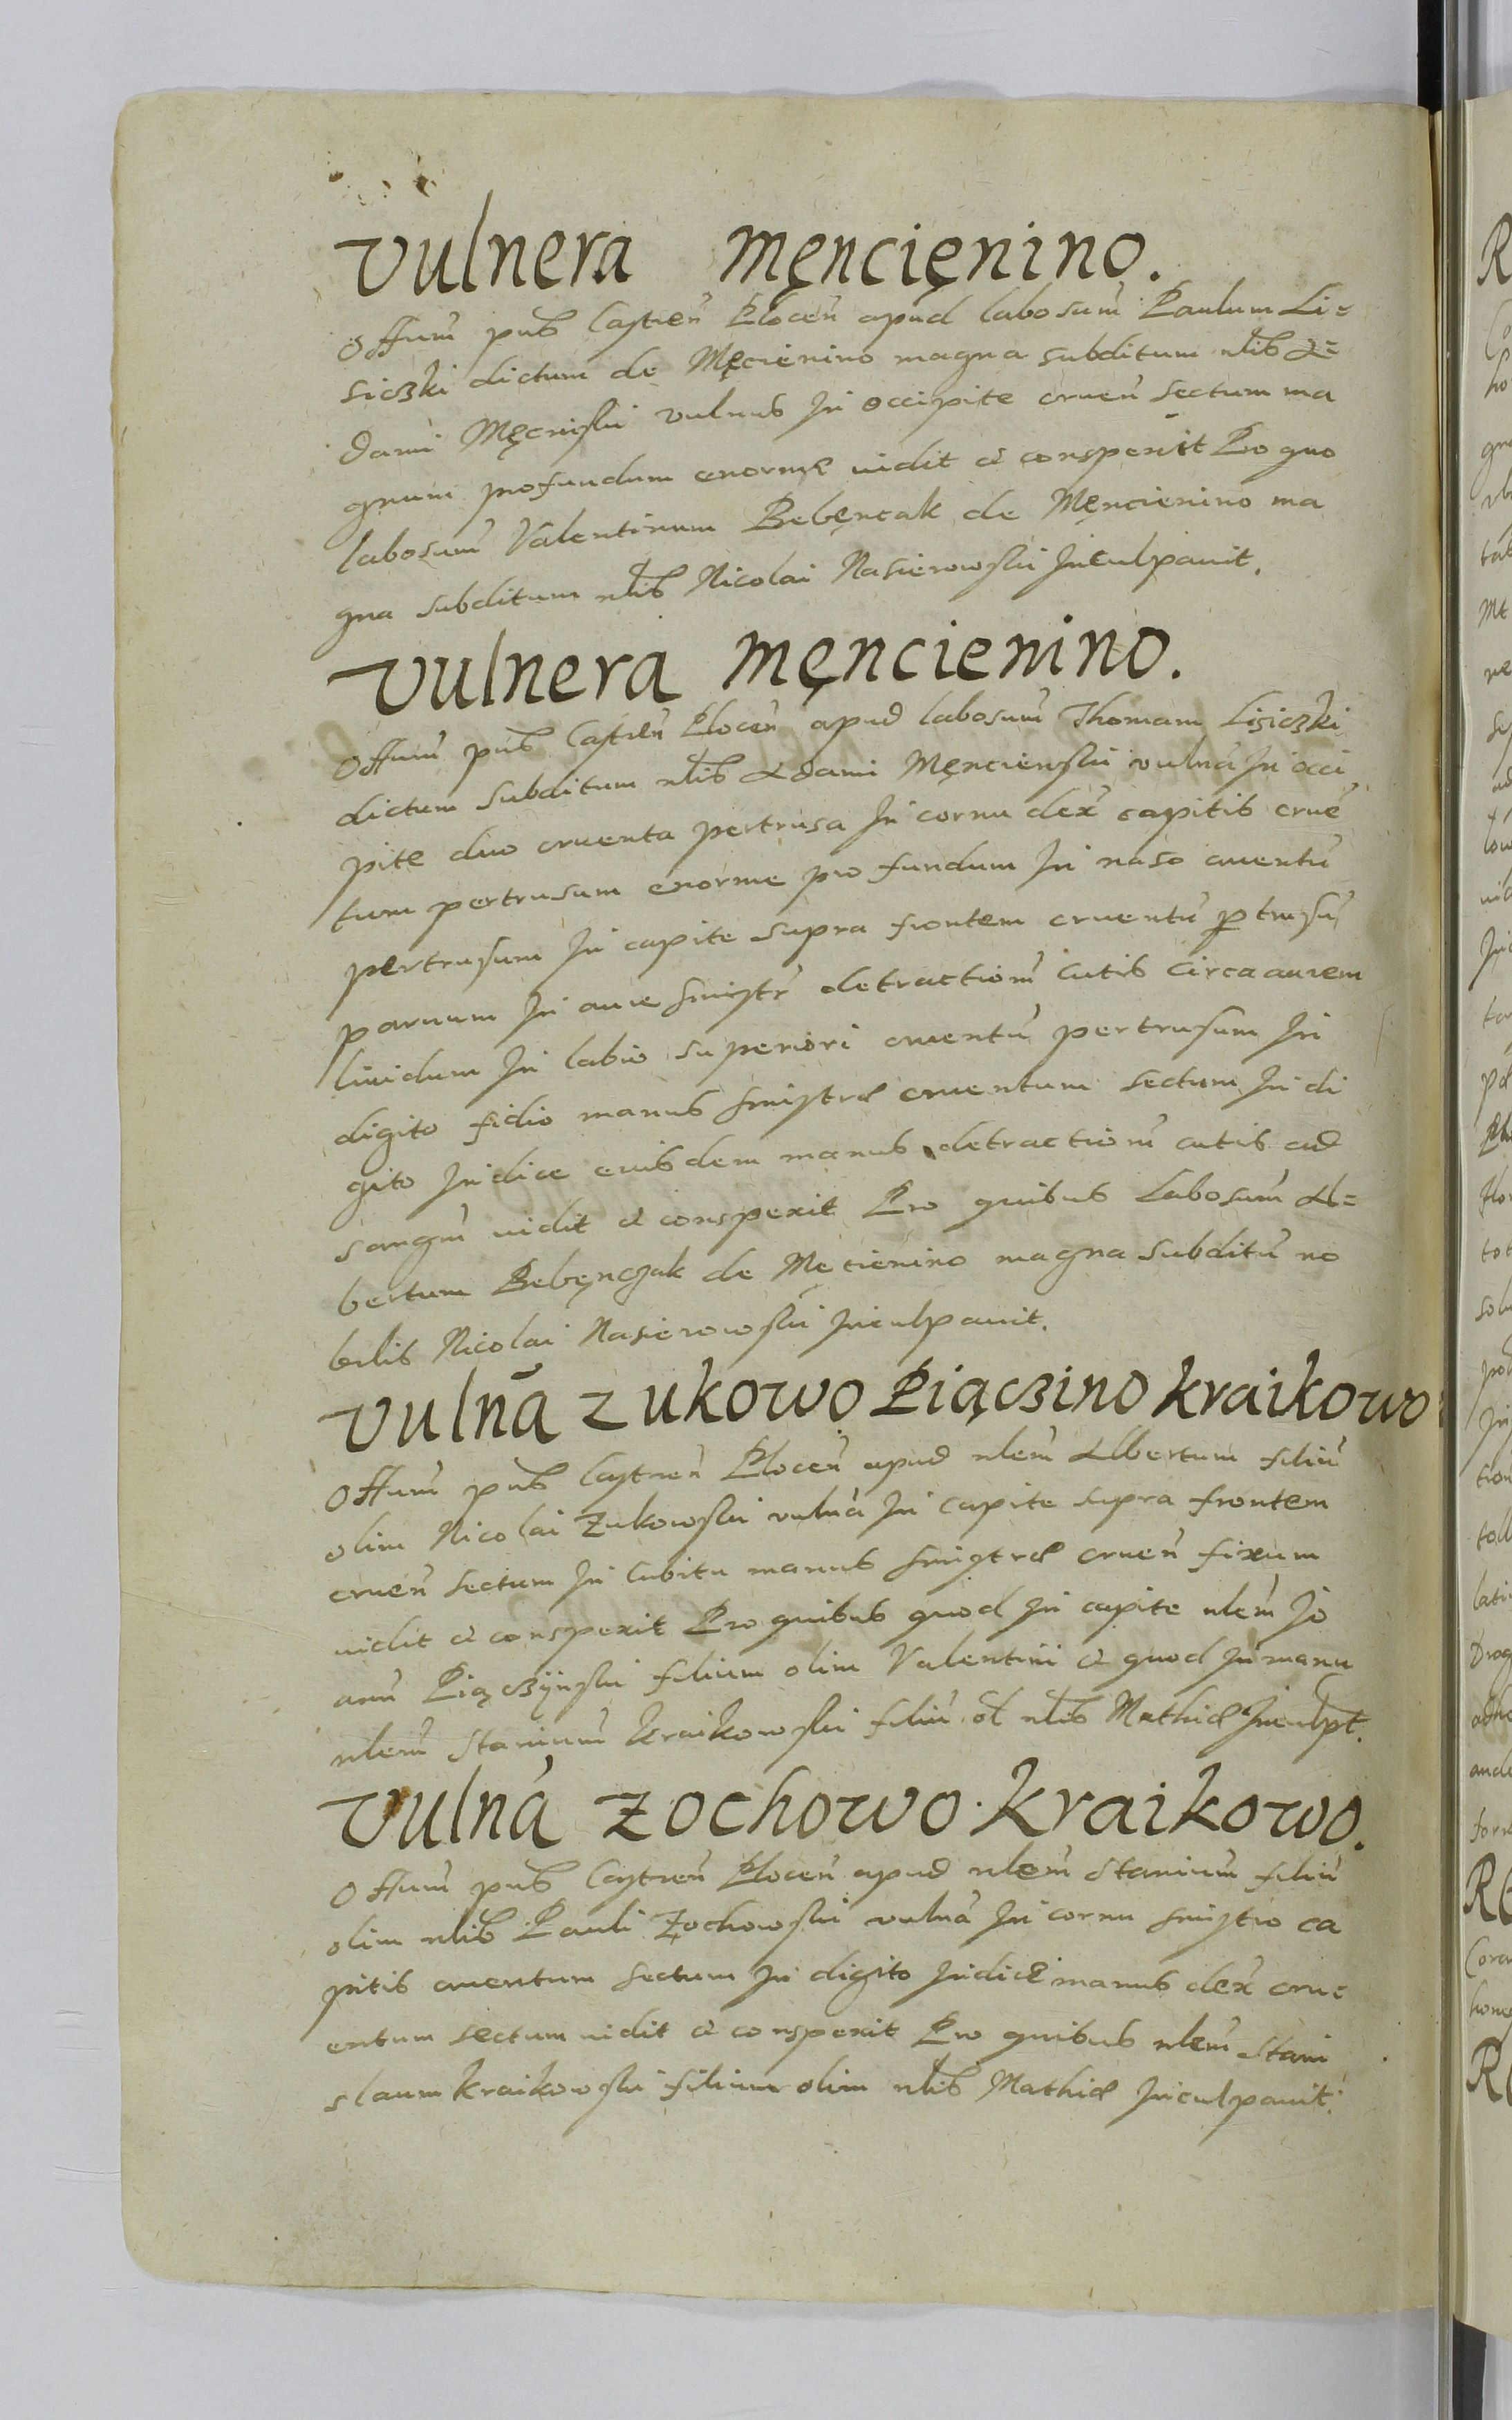 Vulnera Męncięnino.
Offium pub Castren Plocen apud labosum Paulum Li=
siczki dictum de Męcienino magna subditum nlib A=
dami Męcinski vulnus In occipite cruen sectum ma
gnum profundum enorme vidit et conspexit Pro quo
labosum Valentinum Bebęncak de Męncienino ma
gna subditum nlib Nicolai Nasierowski Inculpavit.
Vulnera Męncienino.
Offium pub Castren Plocen apud labosum Thomam Lisiczki
dictum subditum nlib Adami Męncienski vulna In occi
pite duo cruenta pertrusa In cornu dex capitis cruē
tum pertrusum enorme profundum In naso cruentū
pertrusum In capite supra frontem cruentū ptrusū
parvum In aure sinistr detractiom cutis circa aurem
lividum In labio superiori cruentū pertrusum In
digito fidio manus sinistræ cruentum sectum In di
gito Indice eiusdem manus detractiom cutis ad
sangm vidit et conspexit Pro quibus Labosum Al=
bertum Bebęnczak de Męcienino magna subditū no
bilis Nicolai Nasierowski Inculpavit.
Vulnā Zukowo Piączino Kraikowo
Offium pub Castren Plocen apud nlem Albertum filiū
olim Nicolai Zukowski vulna In capite supra frontem
cruen sectum In cubitu manus sinistræ cruen fixum
vidit et conspexit Pro quibus quod In capite nlem Jo
anū Piączÿnski filium olim Valentini et quod In manu
nlem Stanium Kraikowski filiū ol nlib Mathiæ Inculpt.
Vulna Zochowo. Kraikowo.
Offium pub Castren Plocen apud nlem Stanium filiū
olim nlib Pauli Zochowski vulna In cornu sinistro ca
pitis cruentum sectum In digito Indice manus dex cru=
entum sectum vidit et conspexit Pro quibus nlem Stani
slaum Kraikowski filium olim nlib Mathiæ Inculpavit.